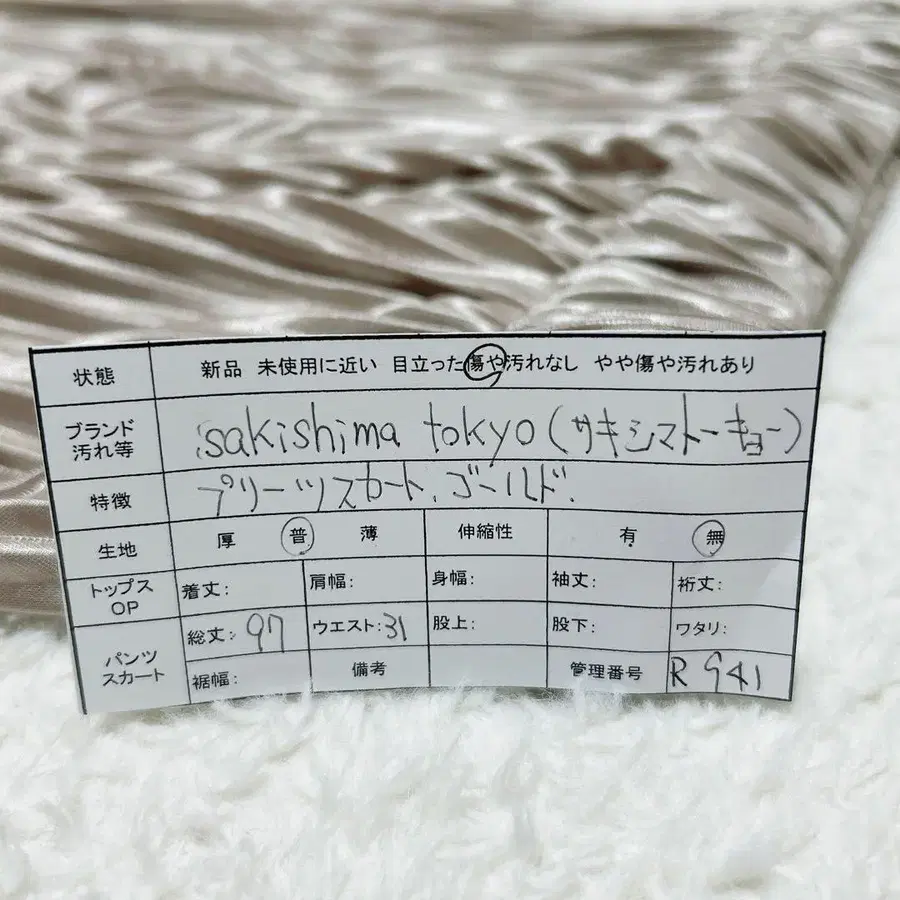 状態 新品 未使用に近い 目立った傷や汚れなし やや傷や汚れあり
ブランド 汚れ等 sakishima tokyo (サキシマトーキョー)
特徴 プリーツスカート、ゴールド.
生地 厚 普 薄 伸縮性 有 無
トップス OP 着丈: 肩幅: 身幅: 袖丈: 裄丈:
パンツ スカート 総丈: 97 ウエスト: 31 股上: 股下: ワタリ:
裾幅: 備考 管理番号 R 941